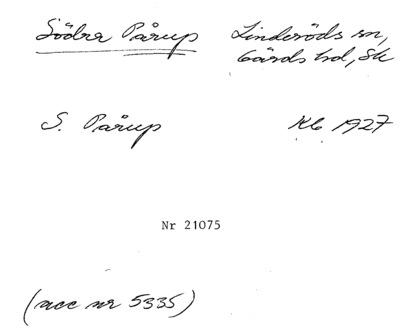 Södra Pårup Linderöds sn,
Gärds hd, Sk
S. Pårup Kb 1927
Nr 21075
(acc nr 5335)